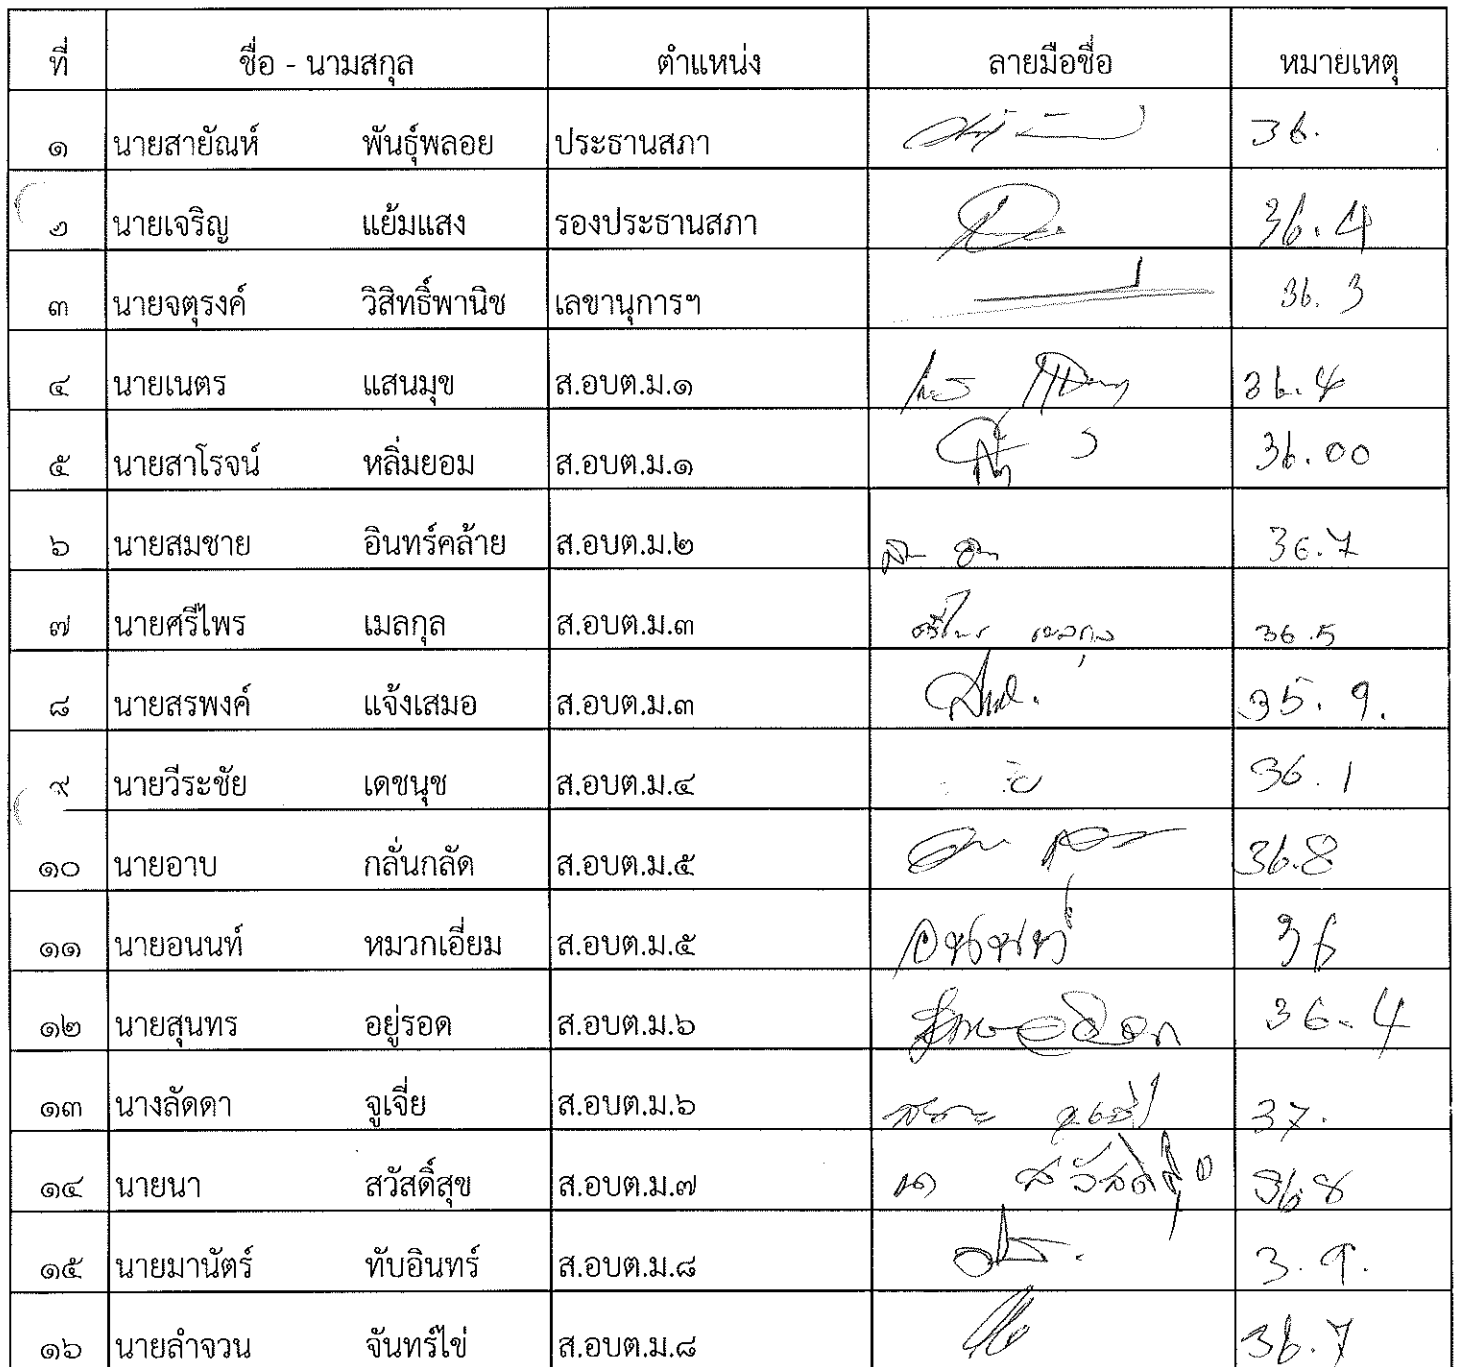 ที่ ชื่อ - นามสกุล ตำแหน่ง ลายมือชื่อ หมายเหตุ
๑ นายสายัณห์ พันธุ์พลอย ประธานสภา 36.
๒ นายเจริญ แย้มแสง รองประธานสภา 36.4
๓ นายจตุรงค์ วิสิทธิ์พานิช เลขานุการฯ 36.3
๔ นายเนตร แสนมุข ส.อบต.ม.๑ 36.4
๕ นายสาโรจน์ หลิ่มยอม ส.อบต.ม.๑ 36.00
๖ นายสมชาย อินทร์คล้าย ส.อบต.ม.๒ 36.7
๗ นายศรีไพร เมลกุล ส.อบต.ม.๓ ศรีไพร เมลกุล 36.5
๘ นายสรพงค์ แจ้งเสมอ ส.อบต.ม.๓ 35.9.
๙ นายวีระชัย เดชนุช ส.อบต.ม.๔ 36.1
๑๐ นายอาบ กลั่นกลัด ส.อบต.ม.๕ 36.8
๑๑ นายอนนท์ หมวกเอี่ยม ส.อบต.ม.๕ อนนท์ 36
๑๒ นายสุนทร อยู่รอด ส.อบต.ม.๖ 36.4
๑๓ นางลัดดา จูเจี่ย ส.อบต.ม.๖ 37.
๑๔ นายนา สวัสดิ์สุข ส.อบต.ม.๗ นา สวัสดิ์สุข 36.8
๑๕ นายมานัตร์ ทับอินทร์ ส.อบต.ม.๘ 3.9.
๑๖ นายลำจวน จันทร์ไข่ ส.อบต.ม.๘ 36.7